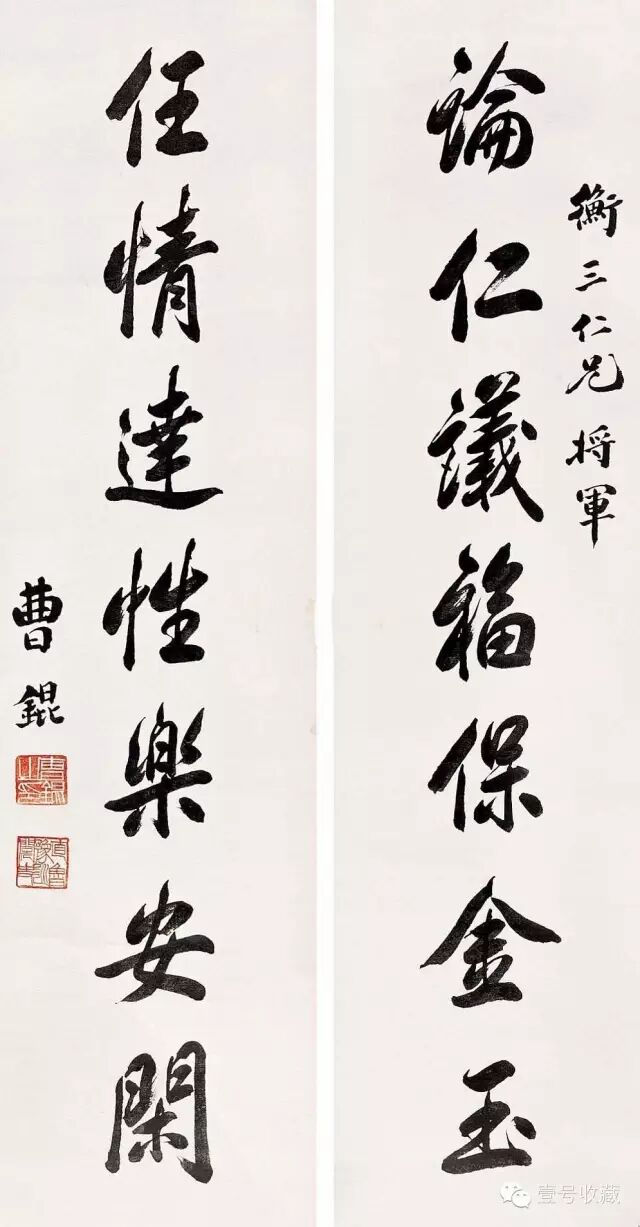 衡三仁兄 将軍
論仁議福保金玉
任情達性樂安閑
曹錕
壹号收藏